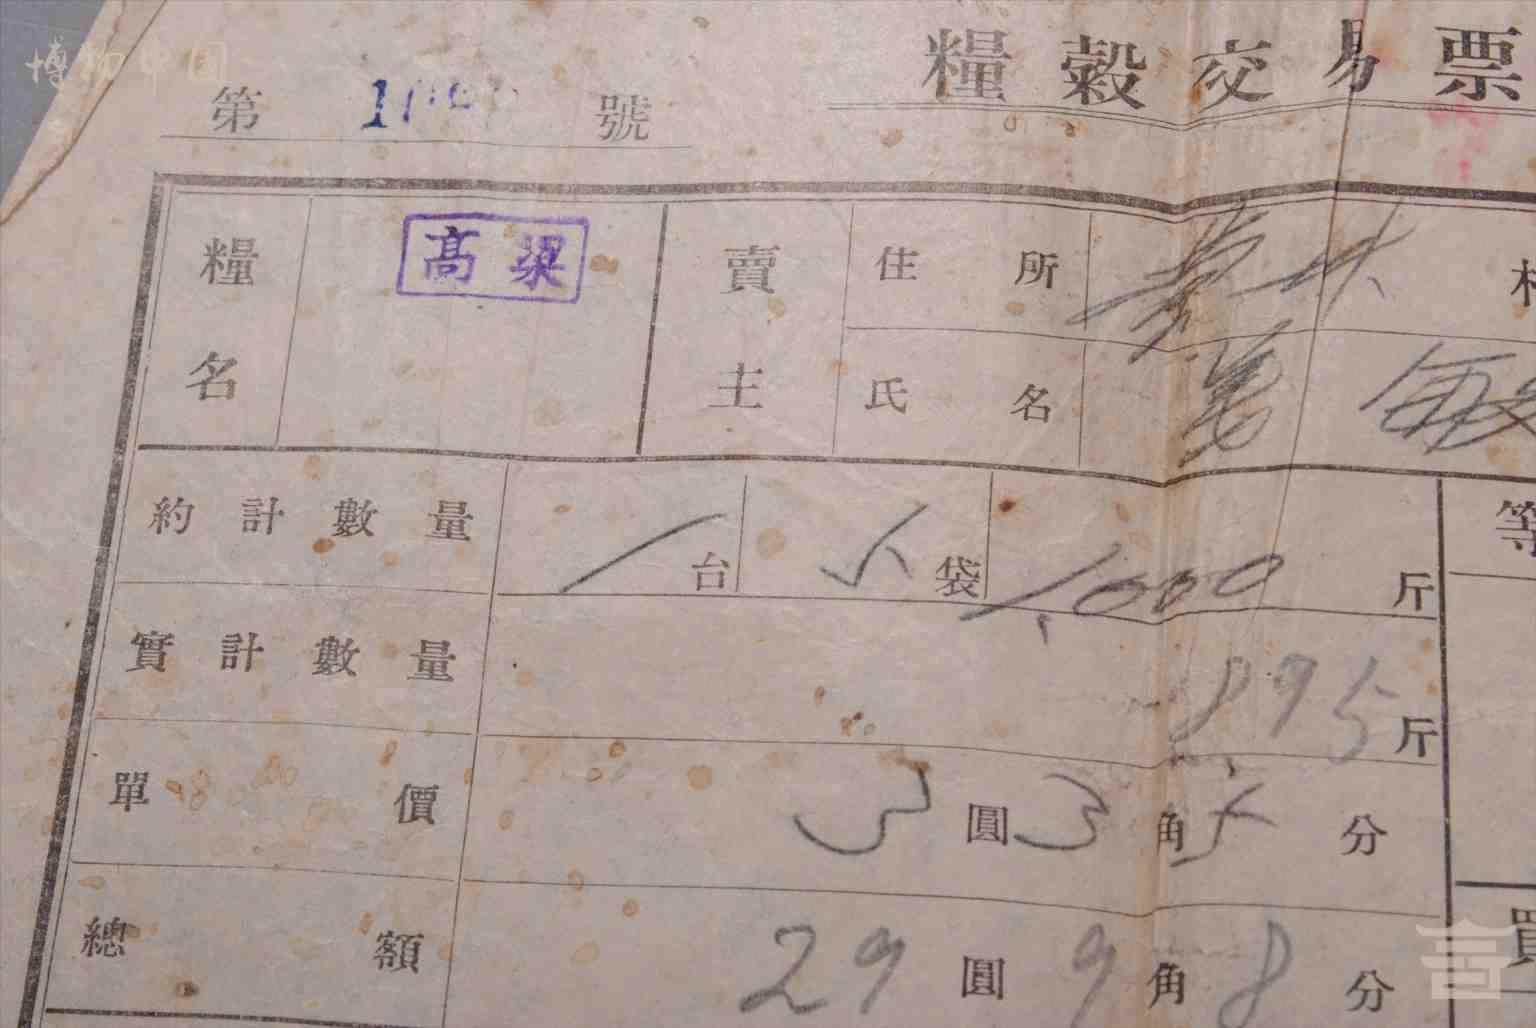 博物中国
糧穀交易票
第 號
糧名 高粱 賣主 住所 大 村
氏名 敏
約計數量 1台 袋 1,000斤 等
實計數量 895斤
單價 3圓3角5分
總額 29圓9角8分 買